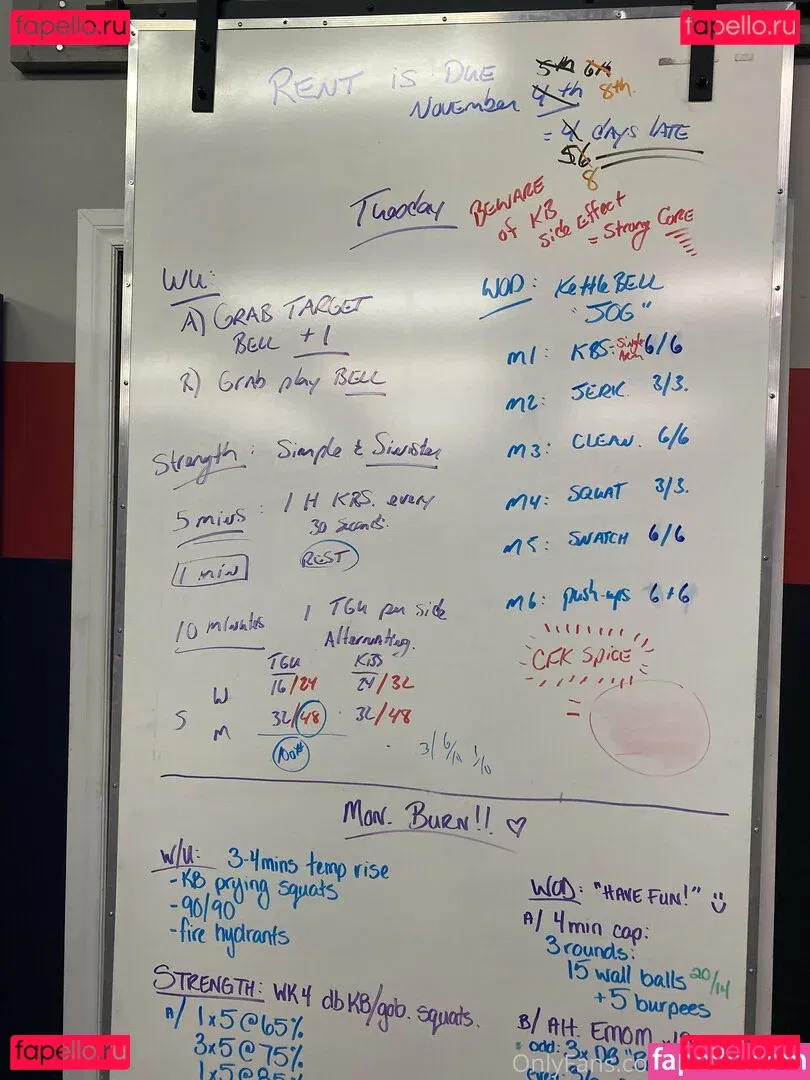 fapello.ru
fapello.ru
RENT is DUE
5th 6th
November 4th 8th.
= 4 days LATE
56
8
Tuesday
BEWARE
of KB
side Effect
= Strong CORE
WU:
A) GRAB TARGET
BELL +1
B) Grab play BELL
Strength: Simple & Sinister
5 mins: 1 H KBS. every
30 seconds.
1 min REST
10 minutes 1 TGU per side
Alternating.
TGU KBS
W 16/24 24/32
S
M 32/48 32/48
100#
3/ 6/10 1/10
WOD: KettleBELL
"JOG"
M1: KBS: Single Arm 6/6
M2: JERK 3/3.
M3: CLEAN. 6/6
M4: SQUAT 3/3.
M5: SNATCH 6/6
M6: push-ups 6+6
CFK SPICE
=
Mon. BURN!! ♡
W/U: 3-4mins temp rise
-KB prying squats
-90/90
-fire hydrants
STRENGTH: WK4 dbKB/gob. squats.
A/ 1x5@65%
3x5@75%
1x5@85%
WOD: "HAVE FUN!"
A/ 4min cap:
3 rounds:
15 wall balls 20/14
+5 burpees
B/ Alt. EMOM
odd: 3x DB
OnlyFans.co
fapello.ru
fapello.ru